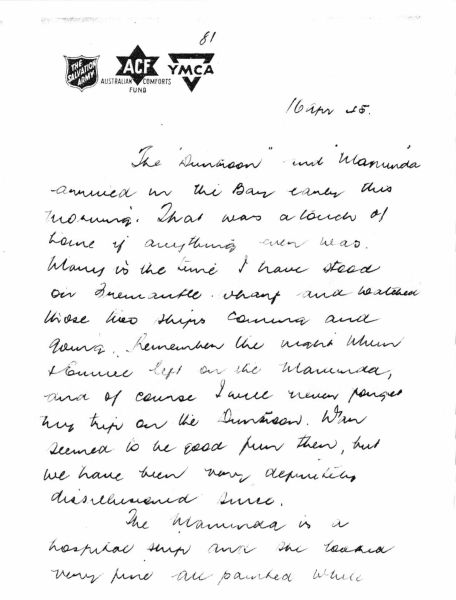 81
THE SALVATION ARMY
ACF
AUSTRALIAN COMFORTS FUND
YMCA
16 Apr 45.
The "Duntroon" and "Manunda"
arrived in the Bay early this
morning. That was a touch of
home if anything ever was.
Many is the time I have stood
on Fremantle wharf and watched
those two ships coming and
going. Remember the night when
left on the Manunda,
and of course I will never forget
my trip on the Duntroon. War
seemed to be good fun then, but
we have been very definitely
disillusioned since.
The Manunda is a
hospital ship and she looked
very fine all painted white